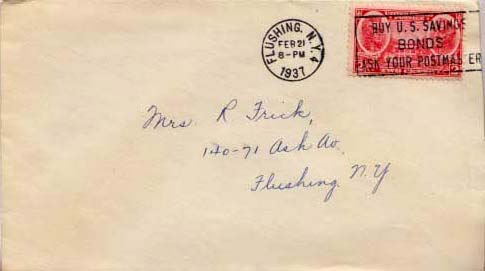 FLUSHING, N.Y. 4
FEB 21
8-PM
1937
BUY U.S. SAVINGS
BONDS
ASK YOUR POSTMASTER
Mrs. R Frick,
140-71 Ash Av.
Flushing. N.Y.